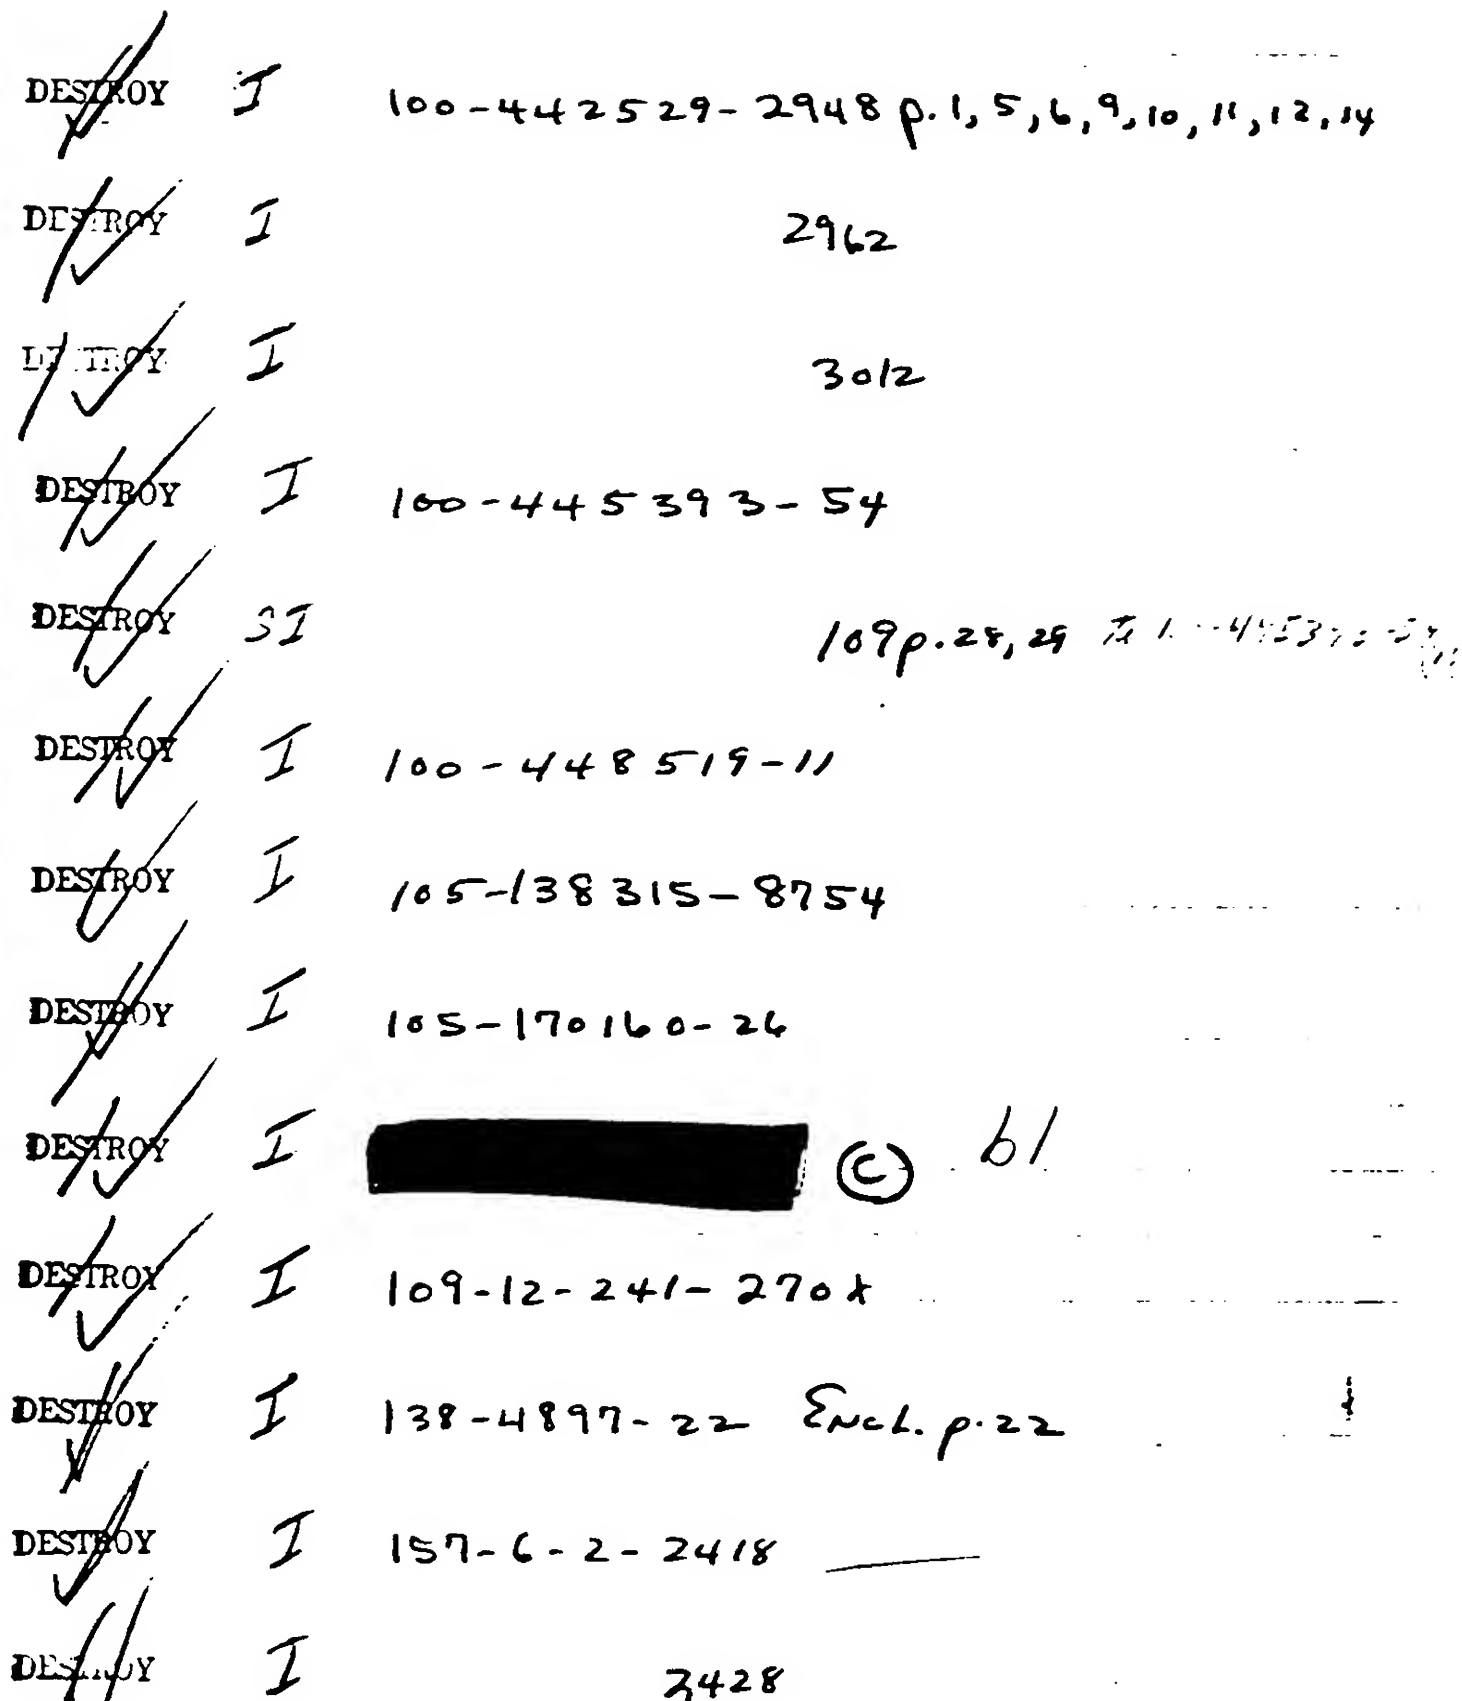 DESTROY I 100-442529-2948 p. 1, 5, 6, 9, 10, 11, 12, 14
DESTROY I 2962
DESTROY I 3012
DESTROY I 100-445393-54
DESTROY SI 109 p. 28, 29
DESTROY I 100-448519-11
DESTROY I 105-138315-8754
DESTROY I 105-170160-26
DESTROY I © b1
DESTROY I 109-12-241-270x
DESTROY I 138-4897-22 Encl. p. 22
DESTROY I 157-6-2-2418
DESTROY I 3428